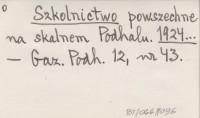 Szkolnictwo powszechne
na skalnem Podhalu. 1924...
— Gaz. Podh. 12, nr 43.
BT/066/1096